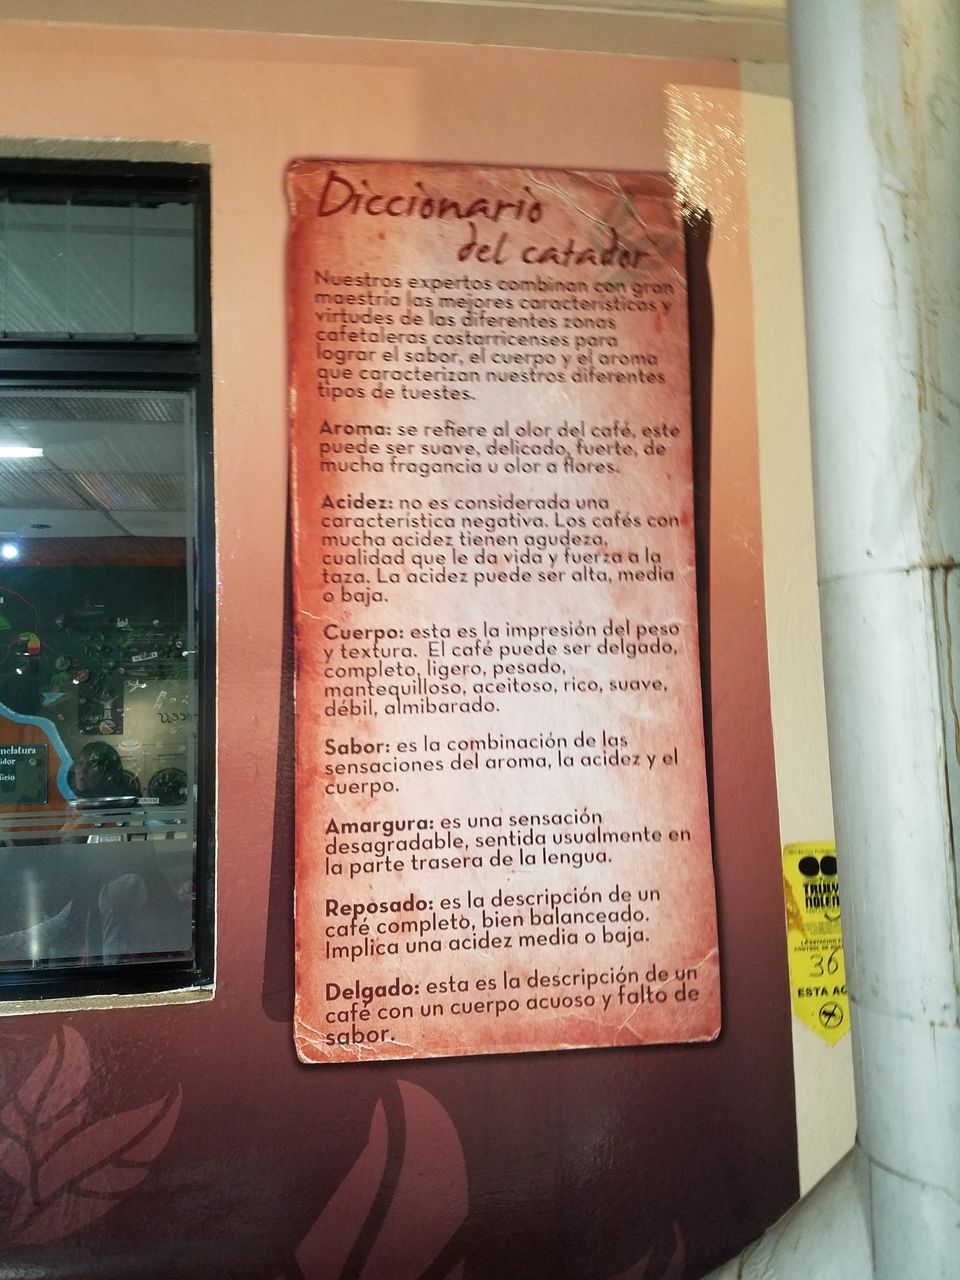 Diccionario
del catador
Nuestros expertos combinan con gran
maestría las mejores características y
virtudes de las diferentes zonas
cafetaleras costarricenses para
lograr el sabor, el cuerpo y el aroma
que caracterizan nuestros diferentes
tipos de tuestes.
Aroma: se refiere al olor del café, este
puede ser suave, delicado, fuerte, de
mucha fragancia u olor a flores.
Acidez: no es considerada una
característica negativa. Los cafés con
mucha acidez tienen agudeza,
cualidad que le da vida y fuerza a la
taza. La acidez puede ser alta, media
o baja.
Cuerpo: esta es la impresión del peso
y textura. El café puede ser delgado,
completo, ligero, pesado,
mantequilloso, aceitoso, rico, suave,
débil, almibarado.
Sabor: es la combinación de las
sensaciones del aroma, la acidez y el
cuerpo.
Amargura: es una sensación
desagradable, sentida usualmente en
la parte trasera de la lengua.
Reposado: es la descripción de un
café completo, bien balanceado.
Implica una acidez media o baja.
Delgado: esta es la descripción de un
café con un cuerpo acuoso y falto de
sabor.
nclatura
idor
ficio
TRULY
NOLEN
36
ESTA AC